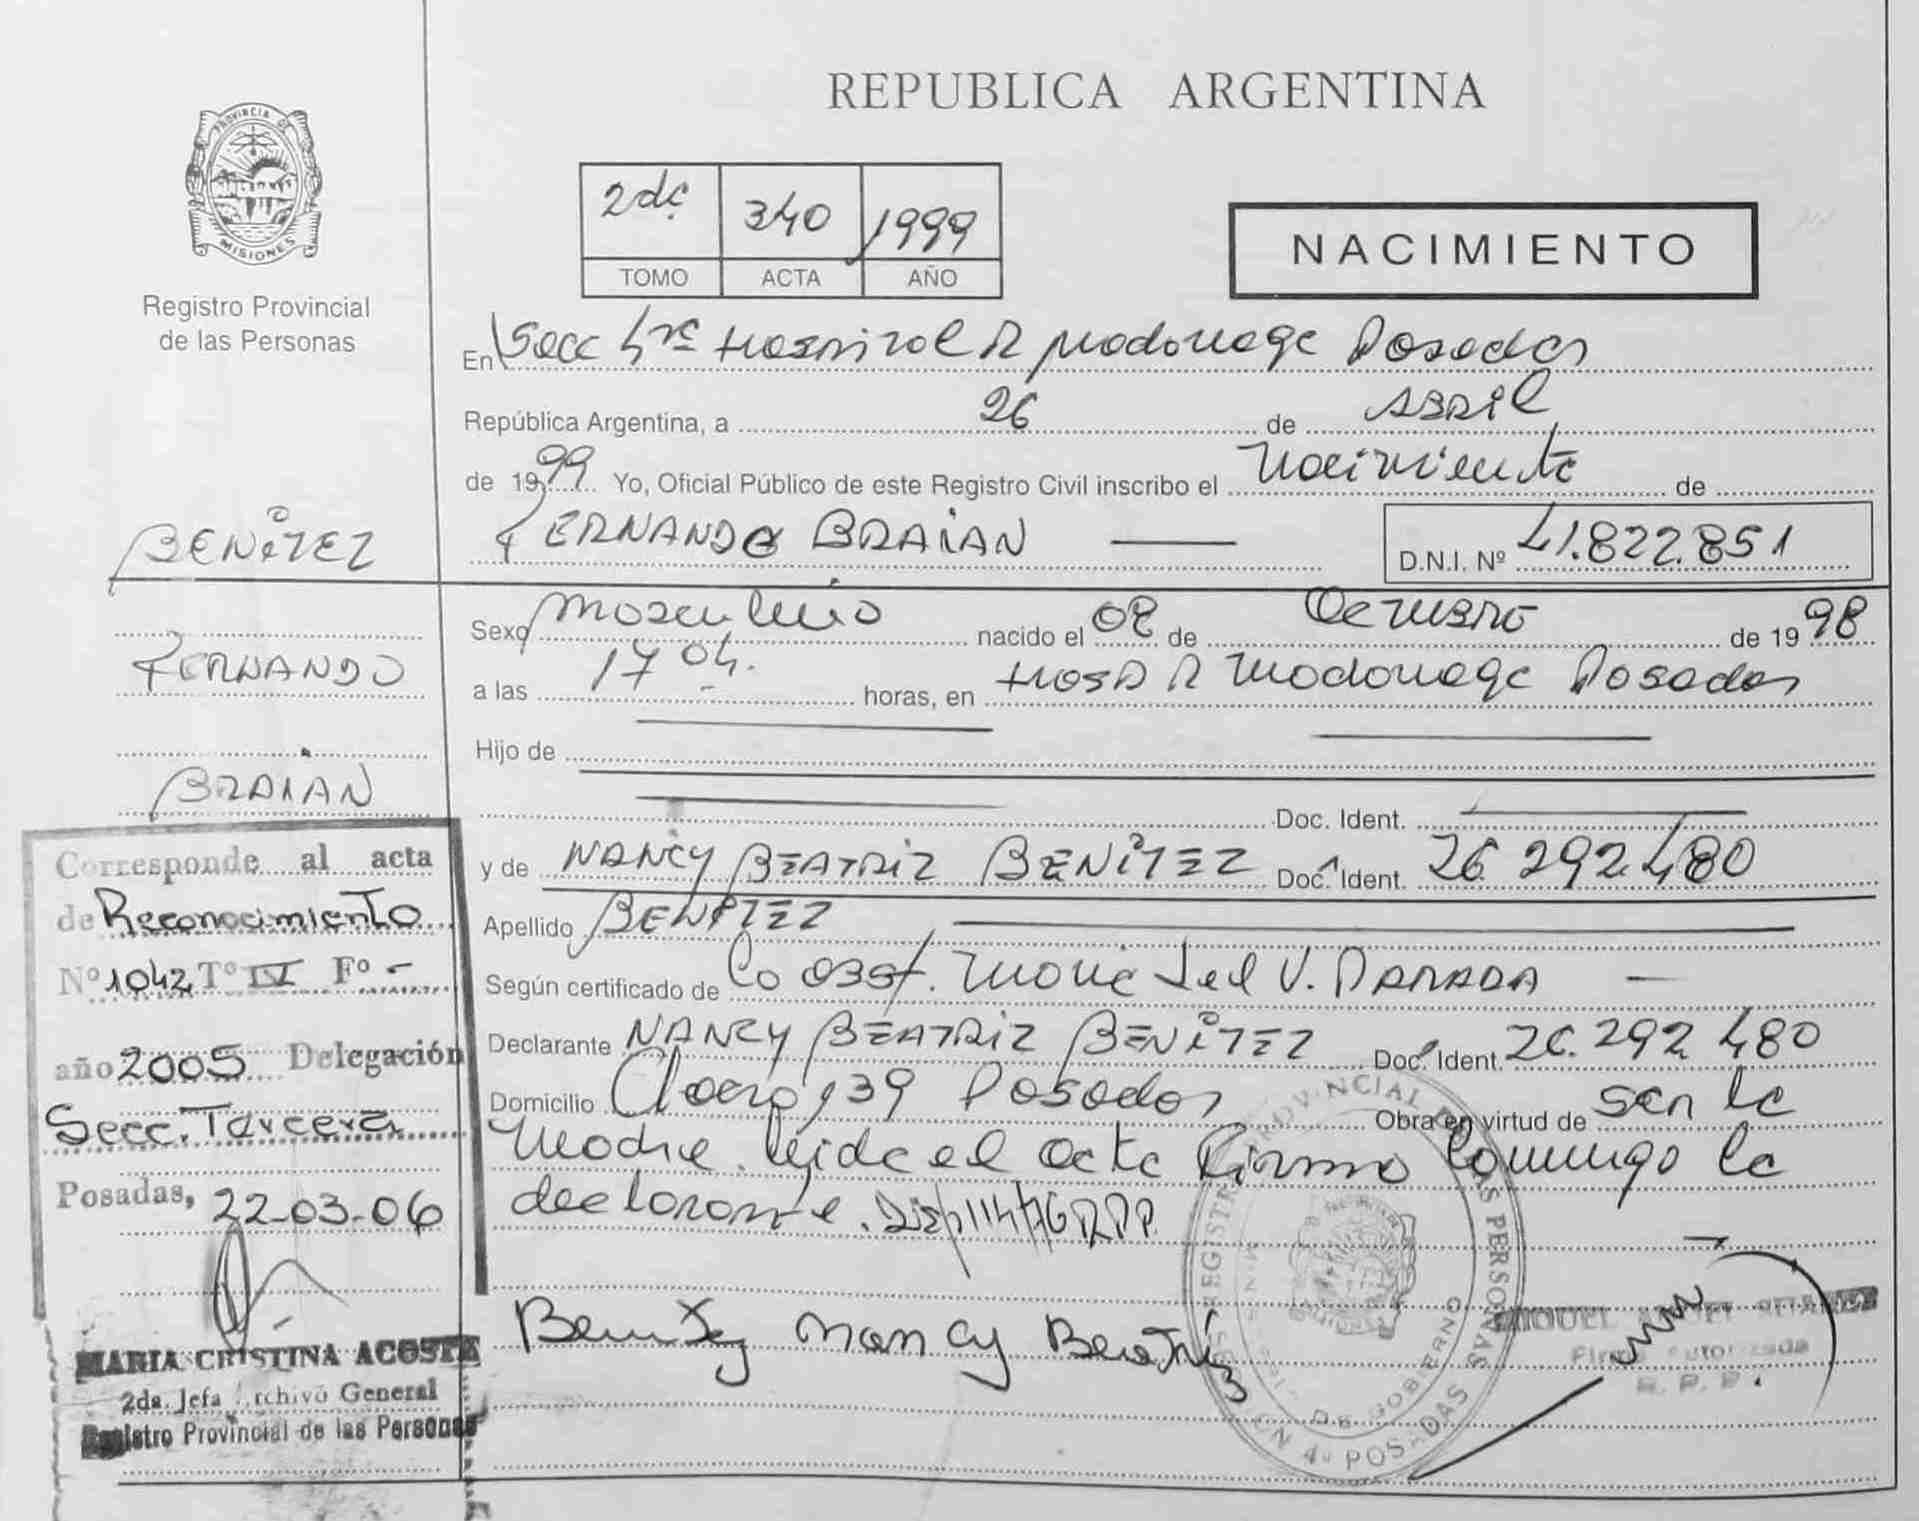 REPUBLICA ARGENTINA
PROVINCIA DE
MISIONES
Registro Provincial
de las Personas
2do 340 1999
TOMO ACTA AÑO
NACIMIENTO
En Secc 4ta Hospital R Madariaga Posadas
República Argentina, a 26 de ABRIL
de 1999 Yo, Oficial Público de este Registro Civil inscribo el Nacimiento de
FERNANDO BRAIAN D.N.I. Nº 41.822.851
BENíTEZ
FERNANDO
BRAIAN
Sexo masculino nacido el 08 de Octubre de 1998
a las 17 04. horas, en Hosp R Madariaga Posadas
Hijo de
Doc. Ident.
y de NANCY BEATRIZ BENíTEZ Doc. Ident. 26.292.480
Apellido BENíTEZ
Según certificado de La Obst. V. PARADA
Declarante NANCY BEATRIZ BENíTEZ Doc. Ident. 26.292.480
Domicilio 39 Posadas Obra en virtud de ser la
Madre. leida el acta Firma Conmigo la
declarante.
Benitez Nancy Beatriz
Corresponde al acta
de Reconocimiento
Nº 1042 Tº IV Fº -
año 2005 Delegación
Secc. Tercera
Posadas, 22-03-06
MARIA CRISTINA ACOSTA
2da. Jefa Archivo General
Registro Provincial de las Personas
REGISTRO PROVINCIAL DE LAS PERSONAS
DE GOBIERNO
POSADAS
MIGUEL
Firma Autorizada
R. P. P.